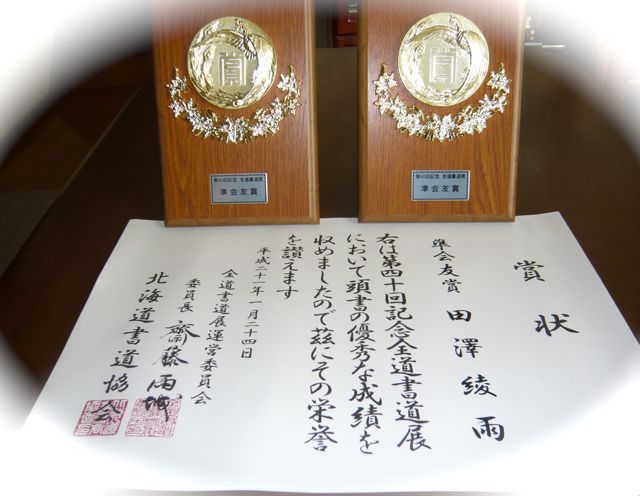 第40回記念 全道書道展
準会友賞
第40回記念 全道書道展
準会友賞
賞状
準会友賞 田澤綾雨
右は第四十回記念全道書道展
において頭書の優秀な成績を
収めましたので茲にその栄誉
を讃えます
平成二十一年一月二十四日
全道書道展運営委員会
委員長 齋藤雨城
北海道書道協会